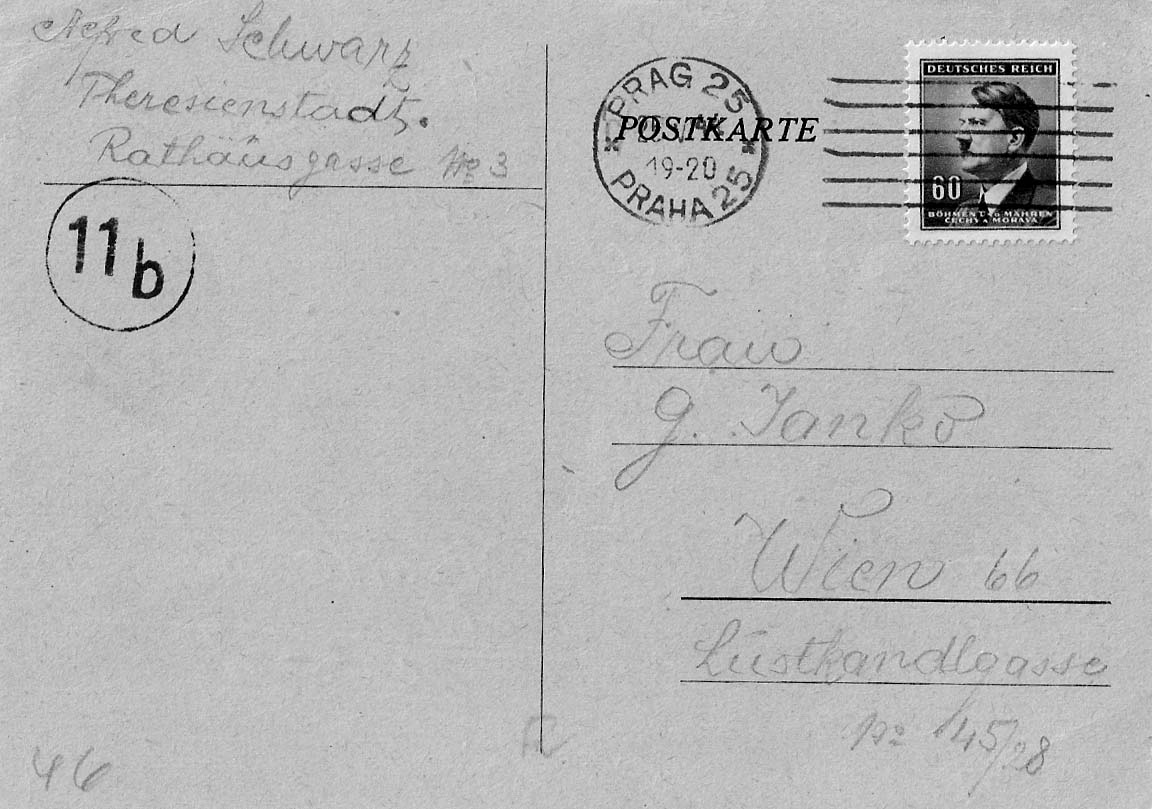 Alfred Schwarz
Theresienstadt.
Rathausgasse No 3
11b
PRAG 25
19-20
PRAHA 25
POSTKARTE
DEUTSCHES REICH
60
BÖHMEN u. MÄHREN
ČECHY A MORAVA
Frau
G. Janko
Wien 66
Lustkandlgasse
No 45/28
46